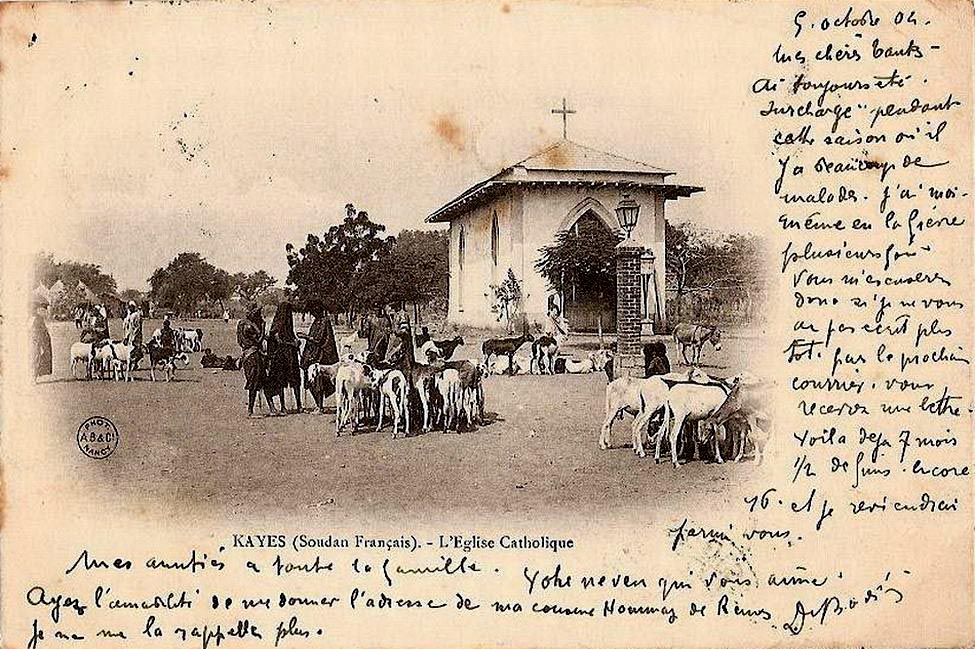 5. octobre 04.
Mes chers
ai toujours été
surchargé pendant
cette saison où il
y a beaucoup de
malades. j'ai moi-
même eu la fièvre
plusieurs fois
Vous m'excuserez
donc si je ne vous
ai pas écrit plus
tôt. par le prochain
courrier. vous
recevrez une lettre.
Voilà déjà 7 mois
1/2 de finis. encore
16. et je reviendrai
parmi vous.
PHOT
A B & Cie
NANCY
KAYES (Soudan Français). - L'Eglise Catholique
Mes amitiés à toute la famille. Votre neveu qui vous aime
Ayez l'amabilité de me donner l'adresse de ma cousine de
je ne me la rappelle plus.